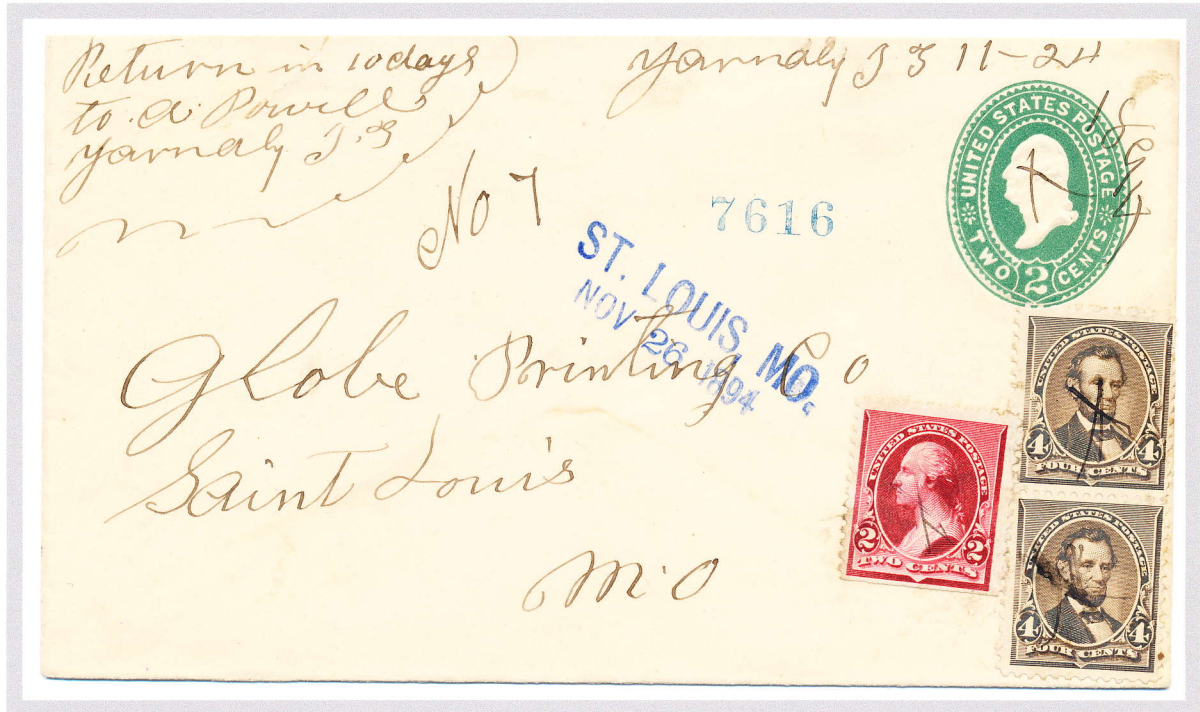 Return in 10 days
to A. Powell
Yarnaby I.T
Yarnaby I T 11-24
1894
No 7
7616
UNITED STATES POSTAGE
TWO 2 CENTS
ST. LOUIS, MO.
NOV 26 1894
Globe Printing Co
Saint Louis
M.O
UNITED STATES POSTAGE
4 4
FOUR CENTS
UNITED STATES POSTAGE
2 2
TWO CENTS
UNITED STATES POSTAGE
4 4
FOUR CENTS